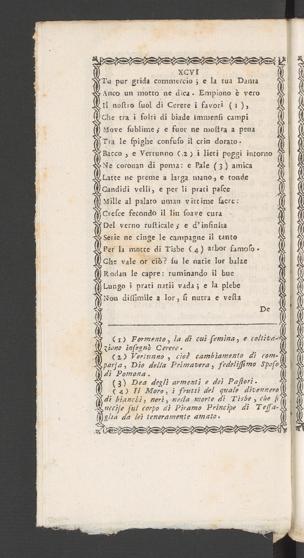 XCVI
Tu pur grida commercio; e la tua Dama
Anco un motto ne dica. Empiono è vero
Il nostro suol di Cerere i favori (1),
Che tra i folti di biade immensi campi
Move sublime; e fuor ne mostra a pena
Tra le spighe confuso il crin dorato.
Bacco, e Vertunno (2) i lieti poggi intorno
Ne coronan di poma: e Pale (3) amica
Latte ne preme a larga mano, e tonde
Candidi velli, e per li prati pasce
Mille al palato uman vittime sacre:
Cresce fecondo il lin soave cura
Del verno rusticale; e d'infinita
Serie ne cinge le campagne il tanto
Per la morte di Tisbe (4) arbor famoso.
Che vale or ciò? su le natie lor balze
Rodan le capre; ruminando il bue
Lungo i prati natii vada; e la plebe
Non dissimile a lor, si nutra e vesta
De
(1) Formento, la di cui semina, e coltiva-
zione insegnò Cerere.
(2) Vertunno, cioè cambiamento di com-
parsa, Dio della Primavera, fedelissimo Sposo
di Pomona.
(3) Dea degli armenti e dei Pastori.
(4) Il Moro, i frutti del quale divennero
di bianchi, neri, nella morte di Tisbe, che si
uccise sul corpo di Piramo Principe di Tessa-
glia da lei teneramente amato.